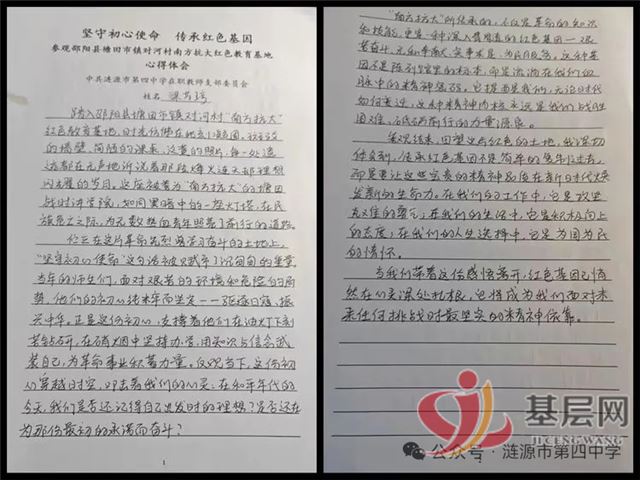 坚守初心使命 传承红色基因
参观邵阳县塘田市镇对河村南方抗大红色教育基地
心得体会
中共涟源市第四中学在职教师支部委员会
姓名
踏入邵阳县塘田市镇对河村"南方抗大"
红色教育基地,时光仿佛在此刻凝固。斑驳
的墙壁,简陋的课桌,泛黄的照片,每一处遗
迹都在无声地诉说着那段烽火连天却理想
闪耀的岁月。这座被誉为"南方抗大"的塘田
战时讲学院,如同黑暗中的一座灯塔,在民
族危亡之际,为无数热血青年照亮了前行的道路。
伫立在这片革命先烈曾学习奋斗的土地上,
"坚守初心使命"这句话被赋予了沉甸甸的重量。
当年的师生们,面对艰苦的环境和危险的局
势,他们的初心纯粹而坚定——驱逐日寇,振
兴中华。正是这份初心,支撑着他们在油灯下刻
苦钻研,在硝烟中坚持办学,用知识与信念武
装自己,为革命事业积蓄力量。反观当下,这份初
心穿越时空,叩击着我们的心灵:在和平年代的
今天,我们是否还记得自己出发时的理想?是否还在
为那份最初的承诺而奋斗?
"南方抗大"所传承的,不仅是革命的知识
和技能,更是一种深入骨髓的红色基因——艰
苦奋斗、无私奉献、实事求是、为民服务。这种基
因不是陈列馆里的标本,而是流淌在我们血
脉中的精神密码。它提醒着我们,无论时代
如何变迁,这种精神内核永远是我们战胜
困难、砥砺前行的力量源泉。
参观结束,回望这片红色的土地,我深切
体会到,传承红色基因不是简单的重复过去,
而是要让这些宝贵的精神品质在新时代焕
发新的生命力。在我们的工作中,它是攻坚
克难的勇气,在我们的生活中,它是积极向上
的态度,在我们的人生选择中,它是为国为民
的情怀。
当我们带着这份感悟离开,红色基因已悄
然在心灵深处扎根,它将成为我们面对未
来任何挑战时最坚实的精神依靠。
基层网
JICENGWANG
公众号·涟源市第四中学